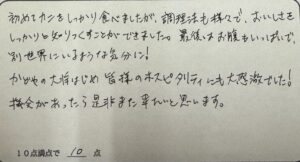 初めてカニをしっかり食べましたが、調理法も様々で、おいしさを
しっかりと知りつくすことができました。最後はお腹もいっぱいで、
別世界にいるような気分に!
かどやの大将はじめ 皆様のホスピタリティにも大感激でした!
機会があったら是非また来たいと思います。
10点満点で 10 点